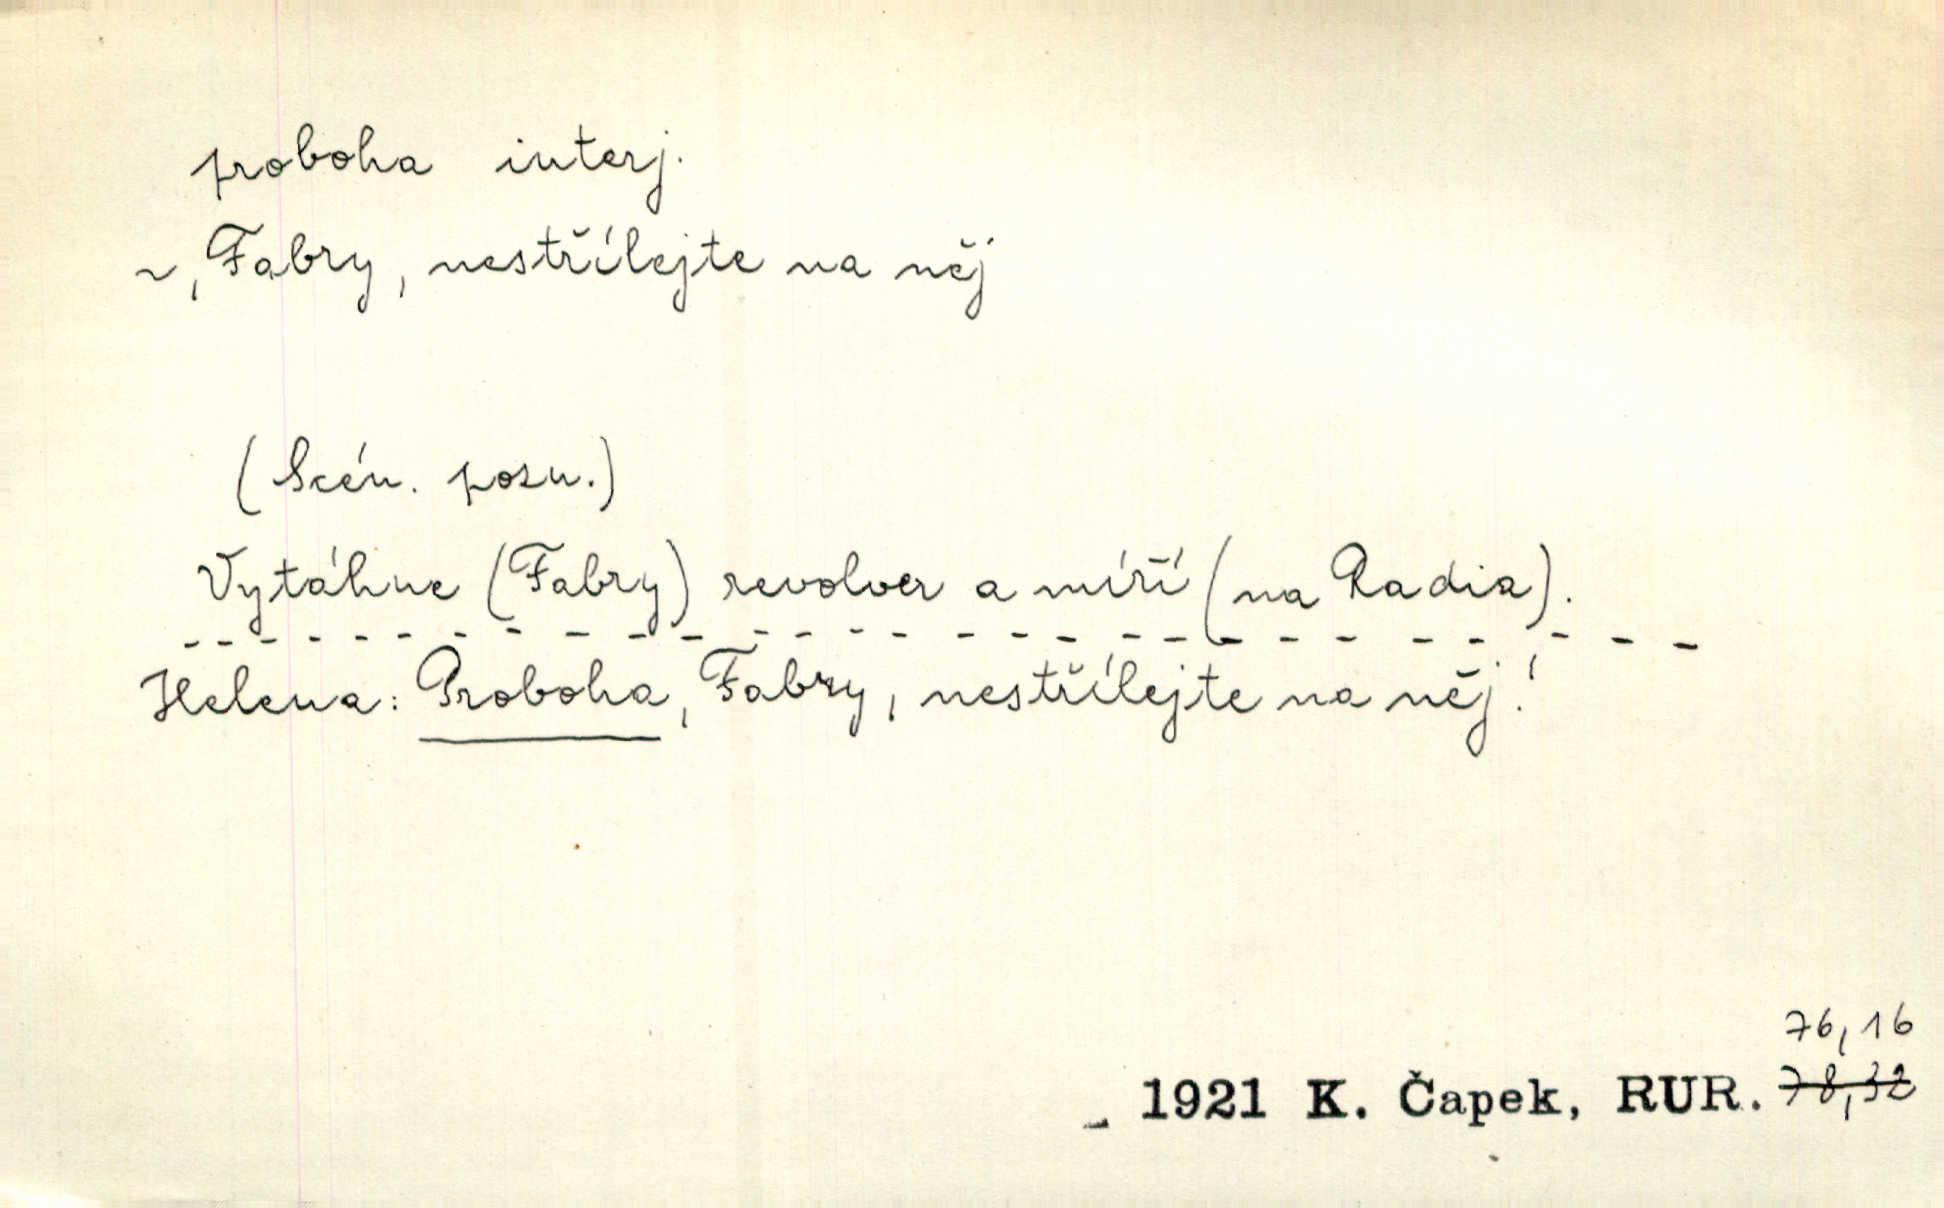 proboha interj.
~, Fabry, nestřílejte na něj
(Scén. pozn.)
Vytáhne (Fabry) revolver a míří (na Radia).
Helena: Proboha, Fabry, nestřílejte na něj!
76,16
1921 K. Čapek, RUR. 78,32